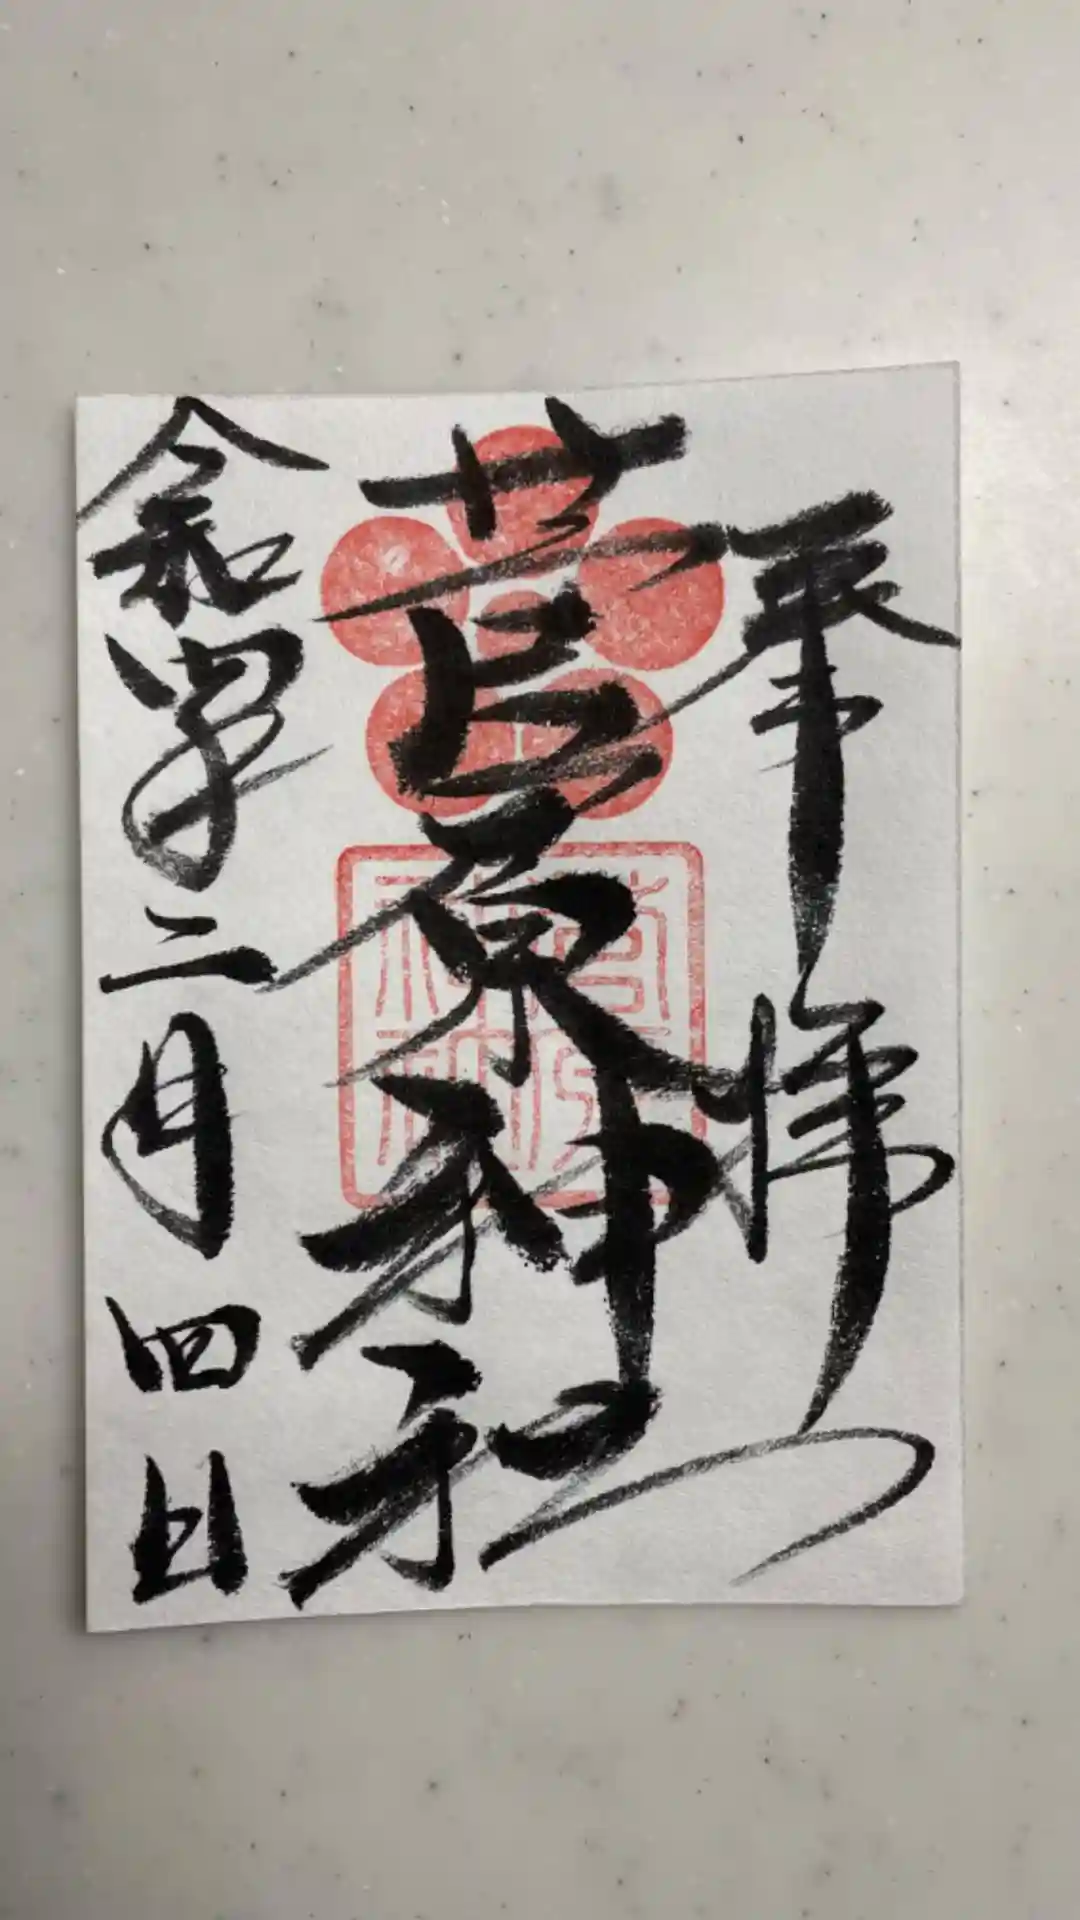 奉拝
菅原神社
菅原神社
令和四年二月四日